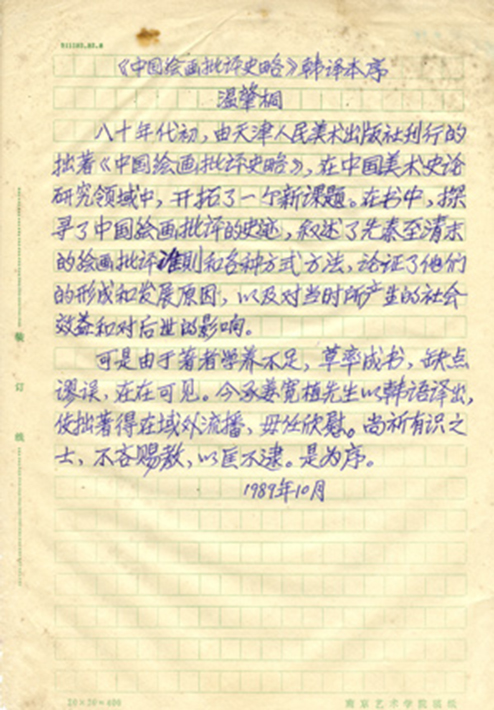 《中国绘画批评史略》韩译本序
温肇桐
八十年代初，由天津人民美术出版社刊行的
拙著《中国绘画批评史略》，在中国美术史论
研究领域中，开拓了一个新课题。在书中，探
寻了中国绘画批评的史迹，叙述了先秦至清末
的绘画批评准则和各种方式方法，论证了他们
的形成和发展原因，以及对当时所产生的社会
效益和对后世的影响。
可是由于著者学养不足，草率成书，缺点
谬误，在在可见。今承姜宽植先生以韩语译出，
使拙著得在域外流播，毋任欣慰。尚祈有识之
士，不吝赐教，以匡不逮。是为序。
1989年10月
装
订
线
20×20=400
南京艺术学院稿纸